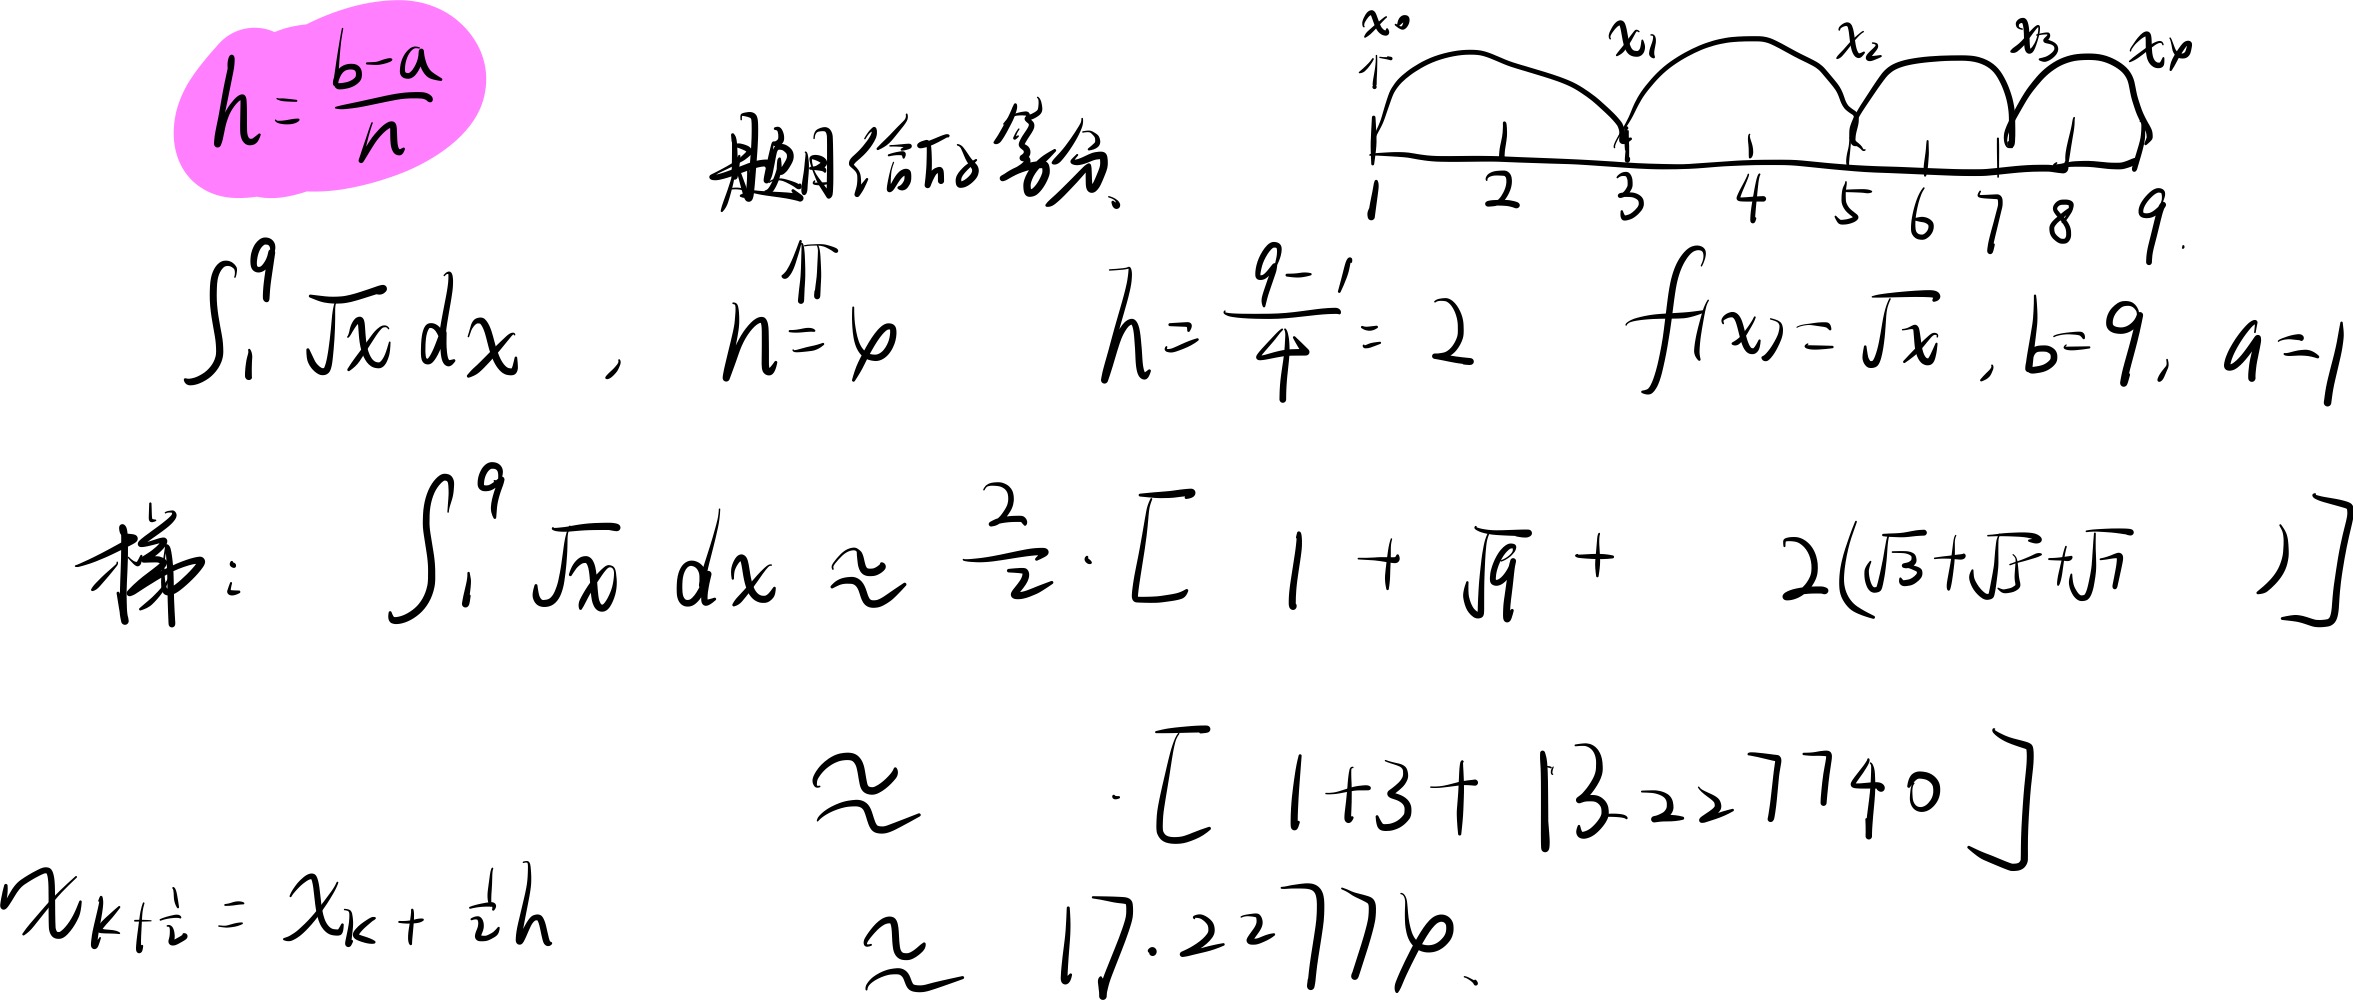 h = \frac{b-a}{n}
x_0 x_1 x_2 x_3 x_4
题目给的等分、
1 2 3 4 5 6 7 8 9.
\int_1^9 \sqrt{x} dx , n = 4 h = \frac{9-1}{4} = 2 f(x) = \sqrt{x}, b=9, a=1
梯: \int_1^9 \sqrt{x} dx ≈ \frac{2}{2} · [ 1 + \sqrt{9} + 2(\sqrt{3}+\sqrt{5}+\sqrt{7} ) ]
≈ · [ 1+3+ 13.227740 ]
x_{k+\frac{1}{2}} = x_k + \frac{1}{2}h
≈ 17.22774、